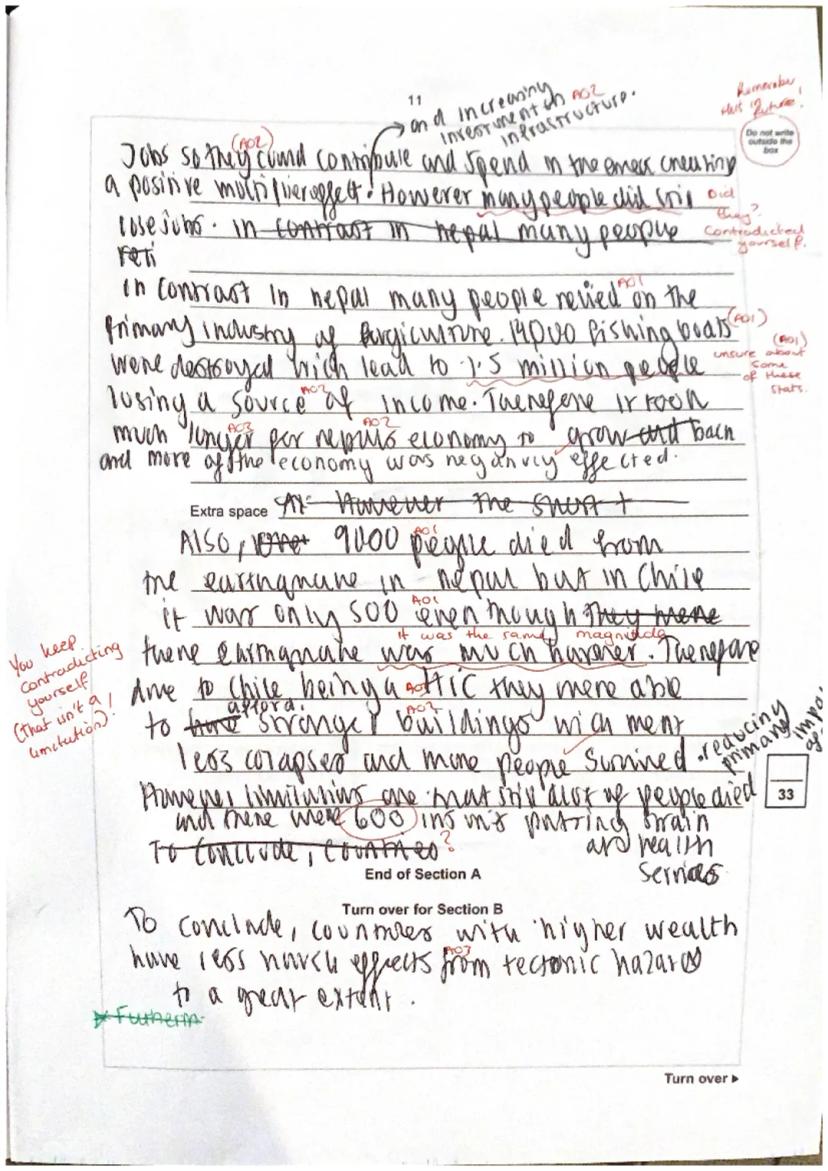 11
and increasing
investment in AO2
infrastructure.
Remember
this in future!
Do not write
outside the
box
(AO2)
Jobs so they could contribute and spend in the creating
a positive multiplier effect. However many people did still
Did
they?
Contradicted
yourself.
lose jobs. in contrast in nepal many people
reti
AO1
in contrast in nepal many people relied on the
primary industry of 14000 fishing boats
(AO1)
were destroyed wich lead to 1.5 million people
(AO1)
unsure about
some
of these
stats.
AO2
losing a source of income. Therefore it took
AO3 AO2
much longer for nepals economy to grow and back
and more of the economy was effected.
Extra space However the short t
AO1
Also, 9000 people died from
the earthquake in nepal but in Chile
AO1
it was only 500 even though they were
it was the same magnitude
there earthquake was much harsher. Therefore
You keep
contradicting
yourself
(that isn't a
limitation)!
AO1
due to Chile being a HIC they were able
afford AO2
to have stronger buildings wich ment
less colapsed and more people survived. reducing
primary
impa
of
However limitations are that still alot of people died
33
and there were 600 putting strain
To conclude, countries ?
and health
services
End of Section A
Turn over for Section B
To conclude, countries with higher wealth
AO3
have less harsh effects from tectonic hazards
to a great extent.
Furtherm
Turn over ►